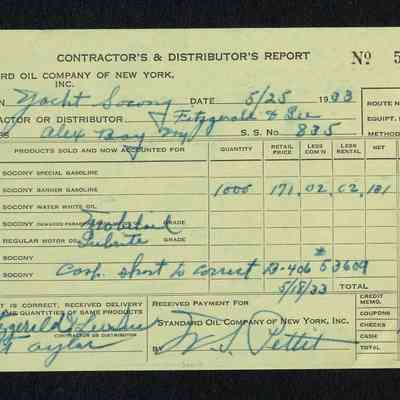 CONTRACTOR'S & DISTRIBUTOR'S REPORT Nº 5
RD OIL COMPANY OF NEW YORK,
INC.
N Yacht Socony DATE 5/25 1933 ROUTE N
CTOR OR DISTRIBUTOR Fitzgerald & Lee EQUIPT.
SS Alex Bay NY S. S. No. 835 METHOD
PRODUCTS SOLD AND NOW ACCOUNTED FOR QUANTITY RETAIL PRICE LESS COM'N LESS RENTAL NET
SOCONY SPECIAL GASOLINE
SOCONY BANNER GASOLINE 1000 171 02 02 131
SOCONY WATER WHITE OIL
SOCONY GRADE
REGULAR MOTOR OIL GRADE
SOCONY
SOCONY Cash short to correct B-406 # 53609
5/18/33 TOTAL
T IS CORRECT, RECEIVED DELIVERY
THE QUANTITIES OF SAME PRODUCTS
RECEIVED PAYMENT FOR
STANDARD OIL COMPANY OF NEW YORK, INC.
CONTRACTOR OR DISTRIBUTOR
Taylor
BY W. S. Pettit
CREDIT MEMO.
COUPONS
CHECKS
CASH
TOTAL